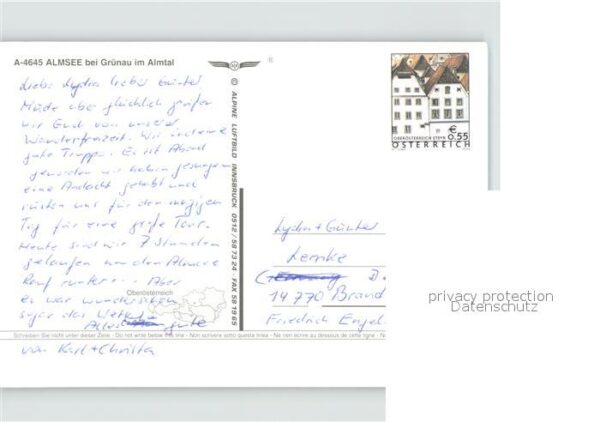 A-4645 ALMSEE bei Grünau im Almtal
Liebe Lydia lieber Günter
Müde aber glücklich grüßen
wir Euch von unserer
Wanderfreizeit. Wir sind eine
gute Truppe. Es ist Abend
geworden wir haben gesungen
eine Andacht gehabt und
rüsten uns für den morgigen
Tag für eine große Tour.
Heute sind wir 7 Stunden
gelaufen um den Almsee
Rauf runter... Aber
es war wunderschön
sogar das Wetter
Alles gute
von Karl + Christa
Oberösterreich
© ALPINE LUFTBILD INNSBRUCK 0512 / 58 73 24 - FAX 58 19 65
OBERÖSTERREICH STEYR
€ 0,55
ÖSTERREICH
Lydia + Günter
Lemke
D-
14770 Brand
Friedrich Engel
Schreiben Sie nicht unter dieser Zeile - Do not write below this line - Non scrivere sotto questa linea - Ne rien écrire au dessous de cette ligne
privacy protection
Datenschutz